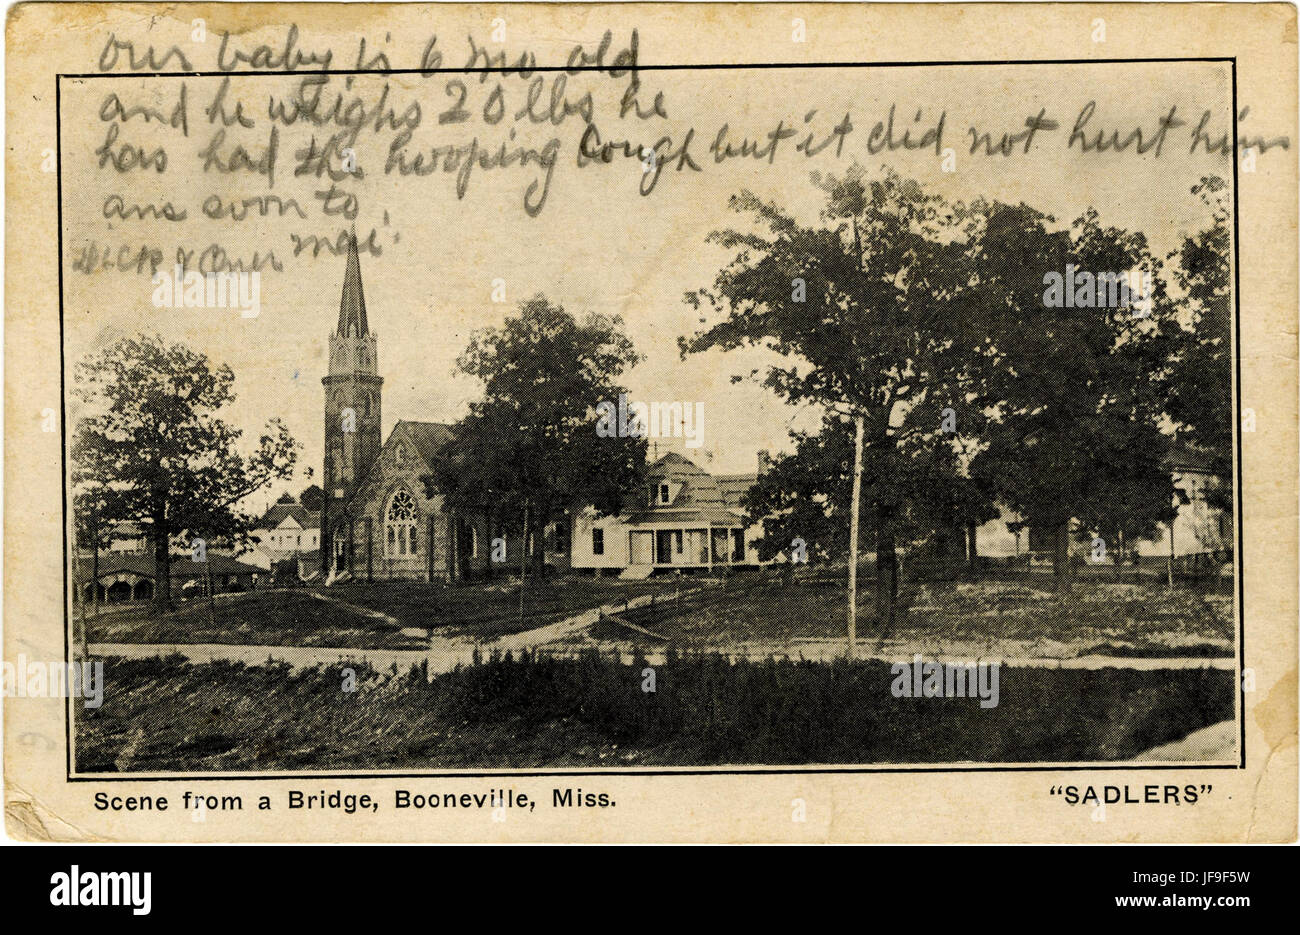 our baby is 6 mo old
and he weighs 20 lbs he
has had the hwoping Cough but it did not hurt him
ans soon to
mai.
Scene from a Bridge, Booneville, Miss.
"SADLERS"
alamy
Image ID: JF9F5W
www.alamy.com